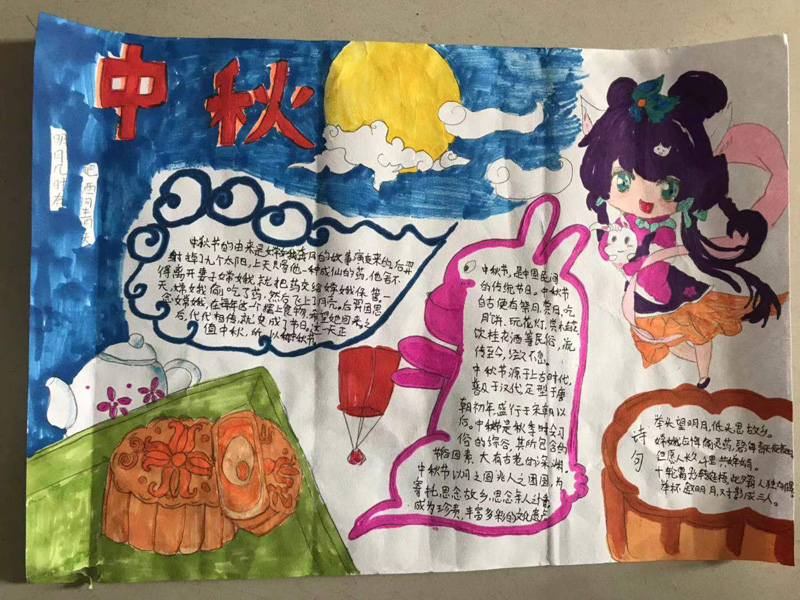 中秋
明月几时有
把酒问青天
中秋节的由来是嫦娥奔月的故事演变来的,后羿
射掉了九个太阳,上天只给他一种成仙的药,他舍不
得离开妻子嫦娥,就把药交给嫦娥保管,一
天,嫦娥偷吃了药,然后飞上了月亮。后羿因思
念嫦娥,在每年这个摆上食物,希望她回来,之
后,代代相传,就变成了节日。这一天正
值中秋,所以称中秋节
中秋节,是中国民间
的传统节日。中秋节
自古便有祭月、赏月、吃
月饼、玩花灯、赏桂花、
饮桂花酒等民俗,流
传至今,经久不息。
中秋节源于上古时代,
普及于汉代,定型于唐
朝初年,盛行于宋朝以
后。中秋节是秋季时令习
俗的综合,其所包含的
节俗因素,大有古老的渊源。
中秋节以月之圆兆人之团圆,为
寄托思念故乡,思念亲人
成为珍贵,丰富多彩的文化遗产
诗句
举头望明月,低头思故乡。
嫦娥应悔偷灵药,碧海青天夜夜心
但愿人长久,千里共婵娟。
十轮霜影转庭梧,此夕羁人独向隅
举杯邀明月,对影成三人。